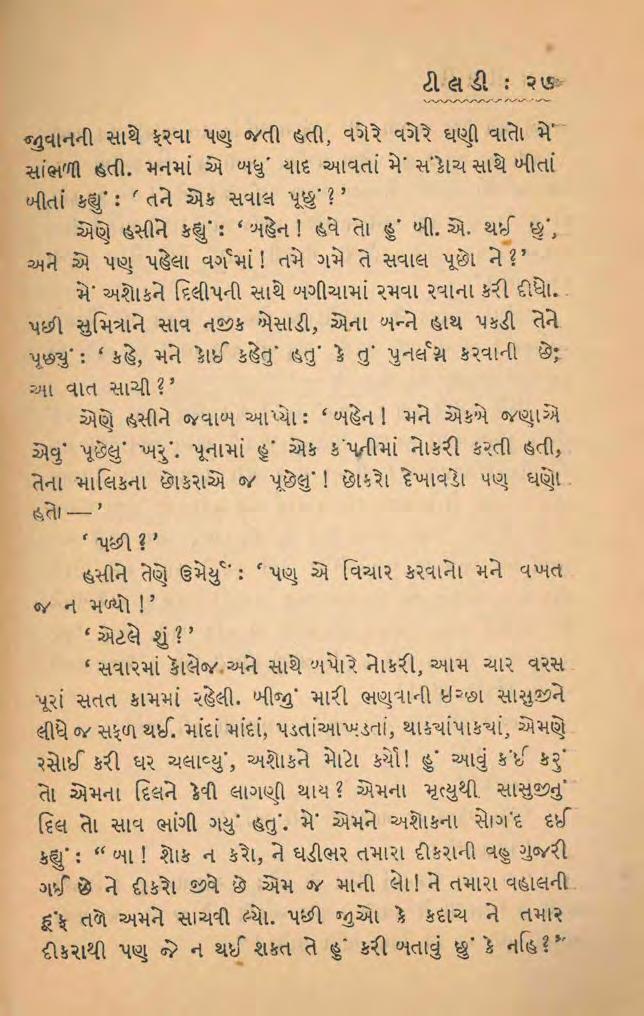 ટીલડી : ૨૭
જુવાનની સાથે ફરવા પણ જતી હતી, વગેરે વગેરે ઘણી વાતો મેં
સાંભળી હતી. મનમાં એ બધું યાદ આવતાં મેં સંકોચ સાથે બીતાં
બીતાં કહ્યું : ‘તને એક સવાલ પૂછું ?’
એણે હસીને કહ્યું : ‘બહેન ! હવે તો હું બી. એ. થઈ છું,
અને એ પણ પહેલા વર્ગમાં ! તમે ગમે તે સવાલ પૂછો ને ?’
મેં અશોકને દિલીપની સાથે બગીચામાં રમવા રવાના કરી દીધો.
પછી સુમિત્રાને સાવ નજીક બેસાડી, એના બન્ને હાથ પકડી તેને
પૂછ્યું : ‘કહે, મને કોઈ કહેતું હતું કે તું પુનર્લગ્ન કરવાની છે;
આ વાત સાચી ?’
એણે હસીને જવાબ આપ્યો : ‘બહેન ! મને એકબે જણાએ
એવું પૂછેલું ખરું. પૂનામાં હું એક કંપનીમાં નોકરી કરતી હતી,
તેના માલિકના છોકરાએ જ પૂછેલું ! છોકરો દેખાવડો પણ ઘણો
હતો —’
‘પછી ?’
હસીને તેણે ઉમેર્યું : ‘પણ એ વિચાર કરવાનો મને વખત
જ ન મળ્યો !’
‘એટલે શું ?’
‘સવારમાં કૉલેજ અને સાથે બપોરે નોકરી, આમ ચાર વરસ
પૂરાં સતત કામમાં રહેલી. બીજું મારી ભણવાની ઇચ્છા સાસુજીને
લીધે જ સફળ થઈ. માંદાં માંદાં, પડતાંઆખડતાં, થાક્યાંપાક્યાં, એમણે
રસોઈ કરી ઘર ચલાવ્યું, અશોકને મોટો કર્યો ! હું આવું કંઈ કરું
તો એમના દિલને કેવી લાગણી થાય ? એમના મૃત્યુથી સાસુજીનું
દિલ તો સાવ ભાંગી ગયું હતું. મેં એમને અશોકના સોગંદ દઈ
કહ્યું : “બા ! શોક ન કરો, ને ઘડીભર તમારા દીકરાની વહુ ગુજરી
ગઈ છે ને દીકરો જીવે છે એમ જ માની લો ! ને તમારા વહાલની
હૂંફ તળે અમને સાચવી લ્યો. પછી જુઓ કે કદાચ ને તમાર
દીકરાથી પણ જે ન થઈ શકત તે હું કરી બતાવું છું કે નહિ ?”